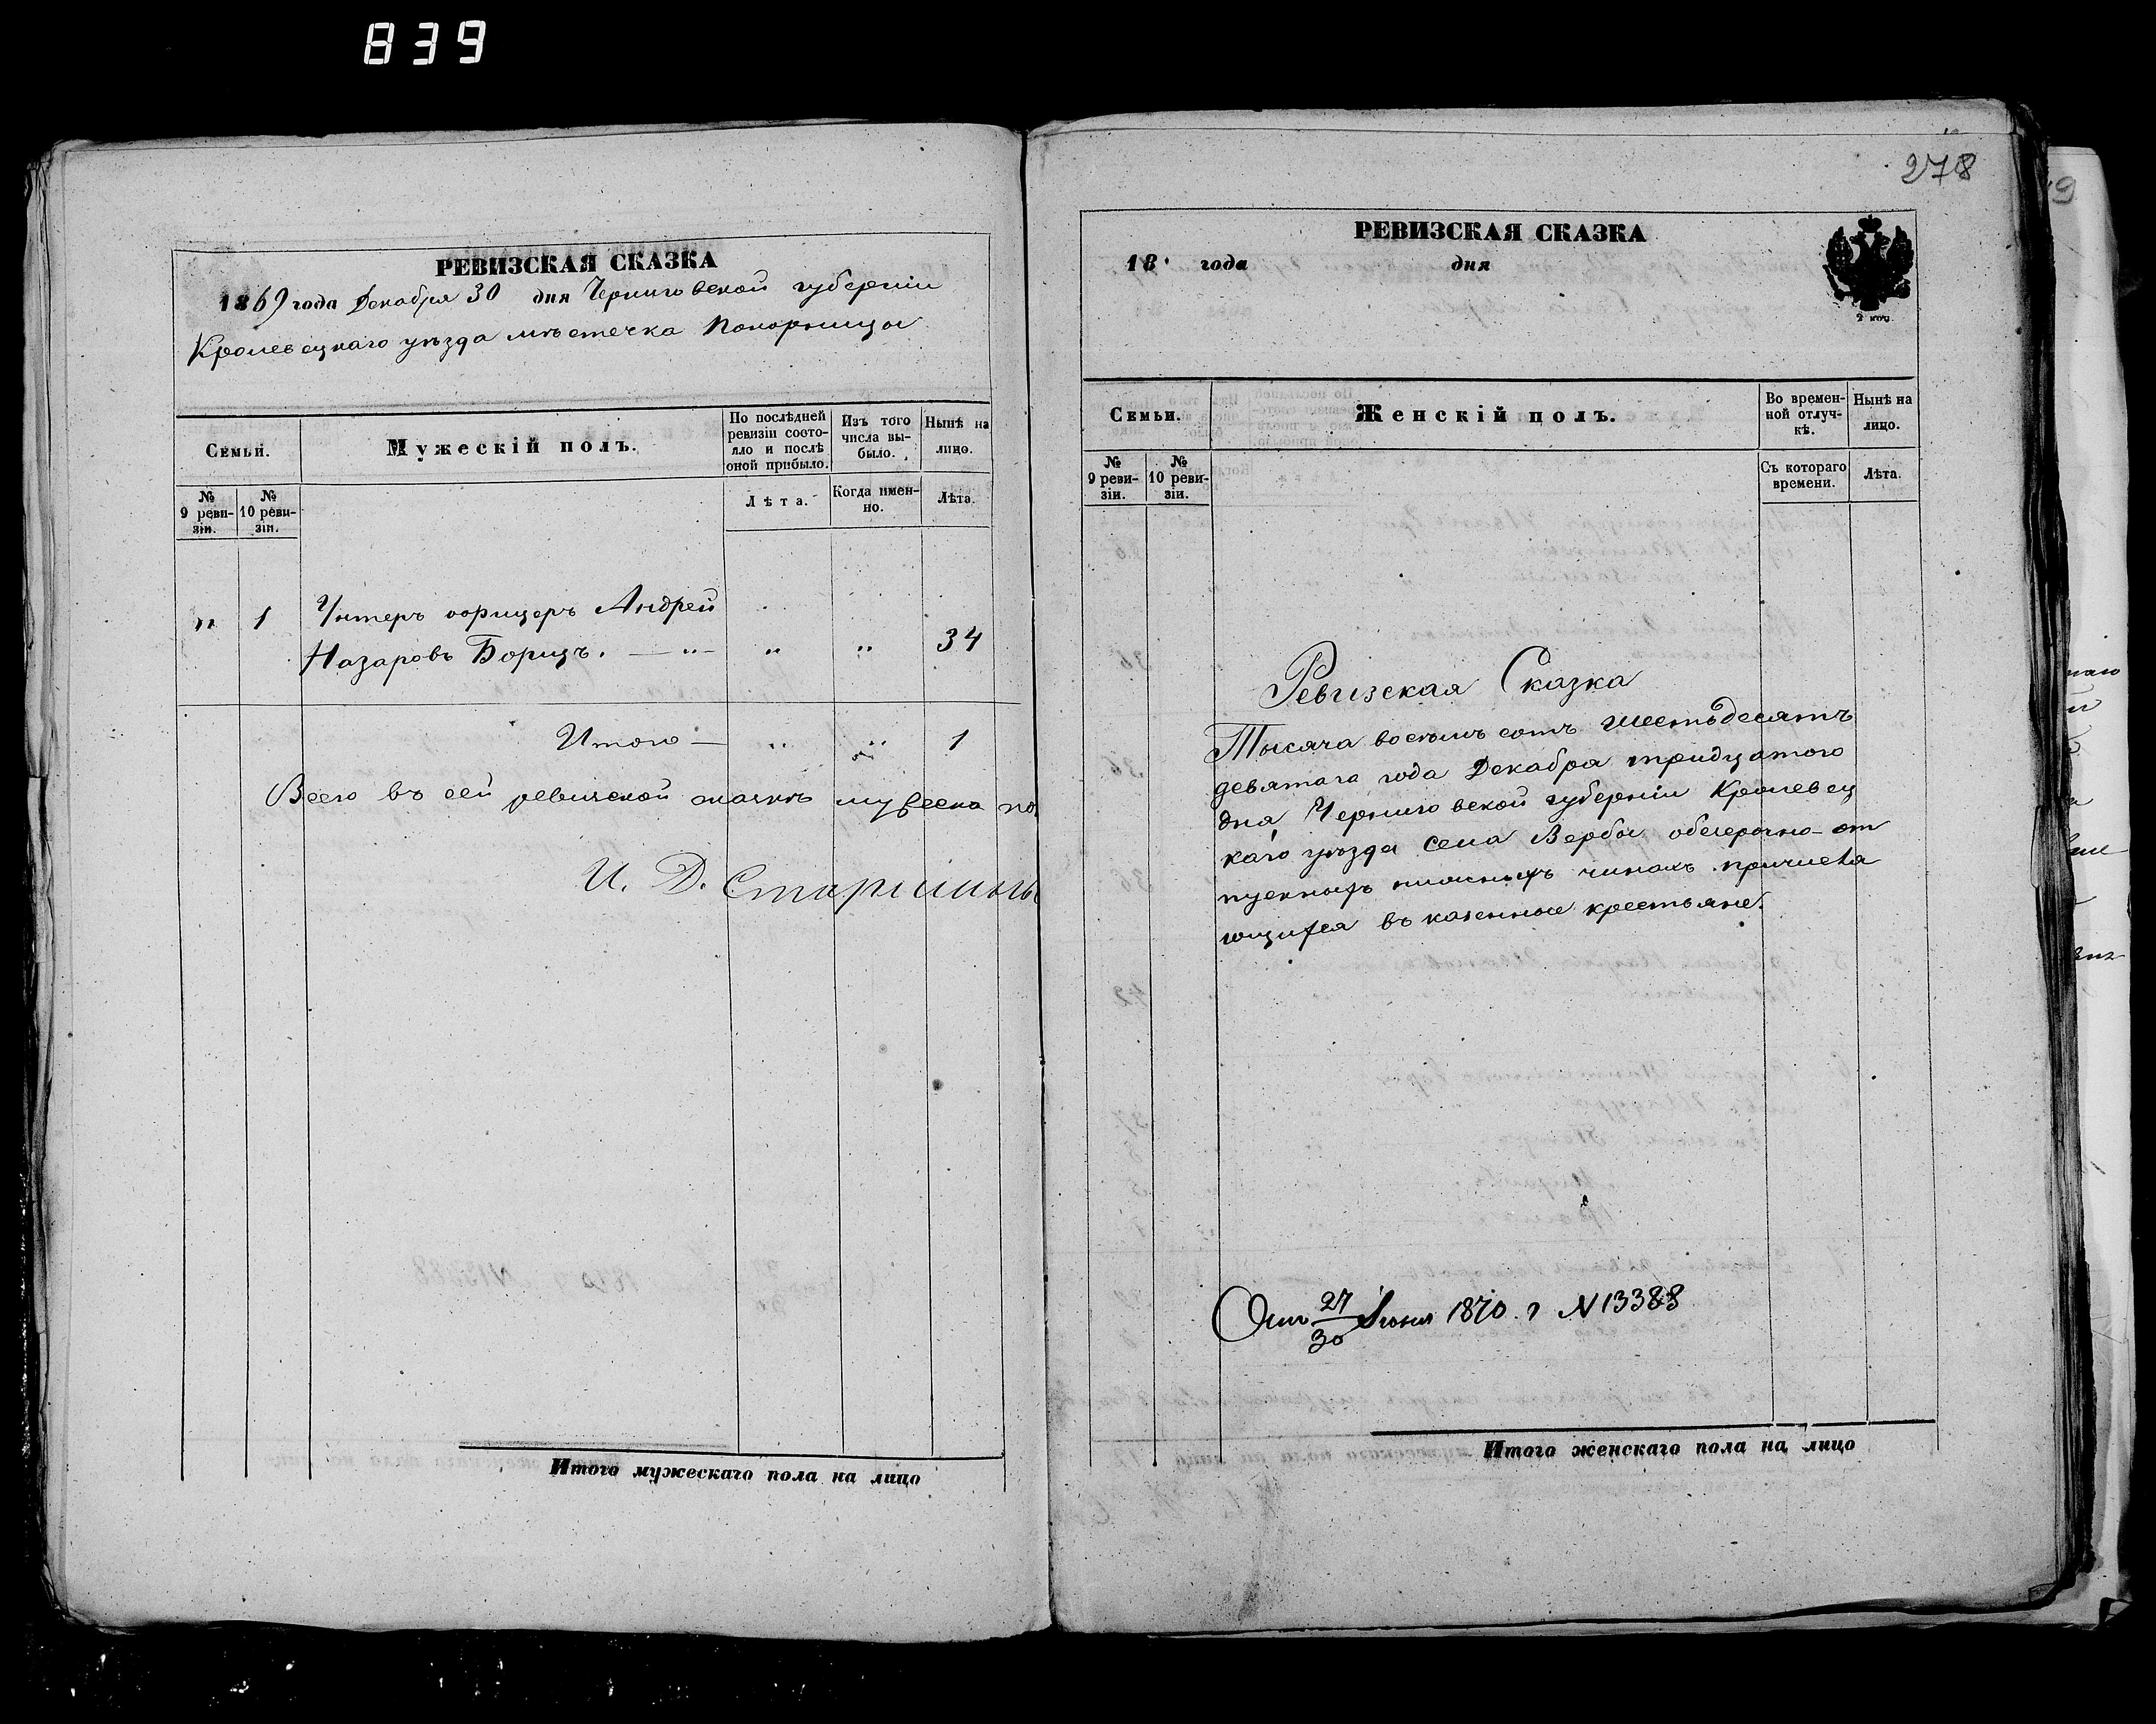 839
РЕВИЗСКАЯ СКАЗКА
1869 года Декабря 30 дня Черниговской губерніи
Кролевецкаго уѣзда мѣстечка Понорницы
Семьи.
Мужескій полъ.
По послѣдней ревизіи состояло и послѣ оной прибыло.
Изъ того числа выбыло.
Нынѣ на лицо.
№ 9 ревизіи.
№ 10 ревизіи.
Лѣта.
Когда именно.
Лѣта.
" 1 Унтеръ офицеръ Андрей
Назаровъ Борицъ. — " — " " 34
Итого — " " 1
Всего въ сей ревизской сказкѣ мужеска по
И. Д. Старшины
Итого мужескаго пола на лицо
278
РЕВИЗСКАЯ СКАЗКА
18 года дня
2 коп.
Семьи.
Женскій полъ.
Во временной отлучкѣ.
Нынѣ на лицо.
№ 9 ревизіи.
№ 10 ревизіи.
Съ котораго времени.
Лѣта.
Ревизская Сказка
Тысяча восемь сотъ шестьдесятъ
девятаго года Декабря тридцатого
дня, Черниговской губерніи Кролевец
каго уѣзда села Вербы обсгерочно-от
пускныхъ нижныхъ чинахъ причисля
ющихся въ казенные крестьяне.
От 27/30 Іюня 1870. г N 13388
Итого женскаго пола на лицо